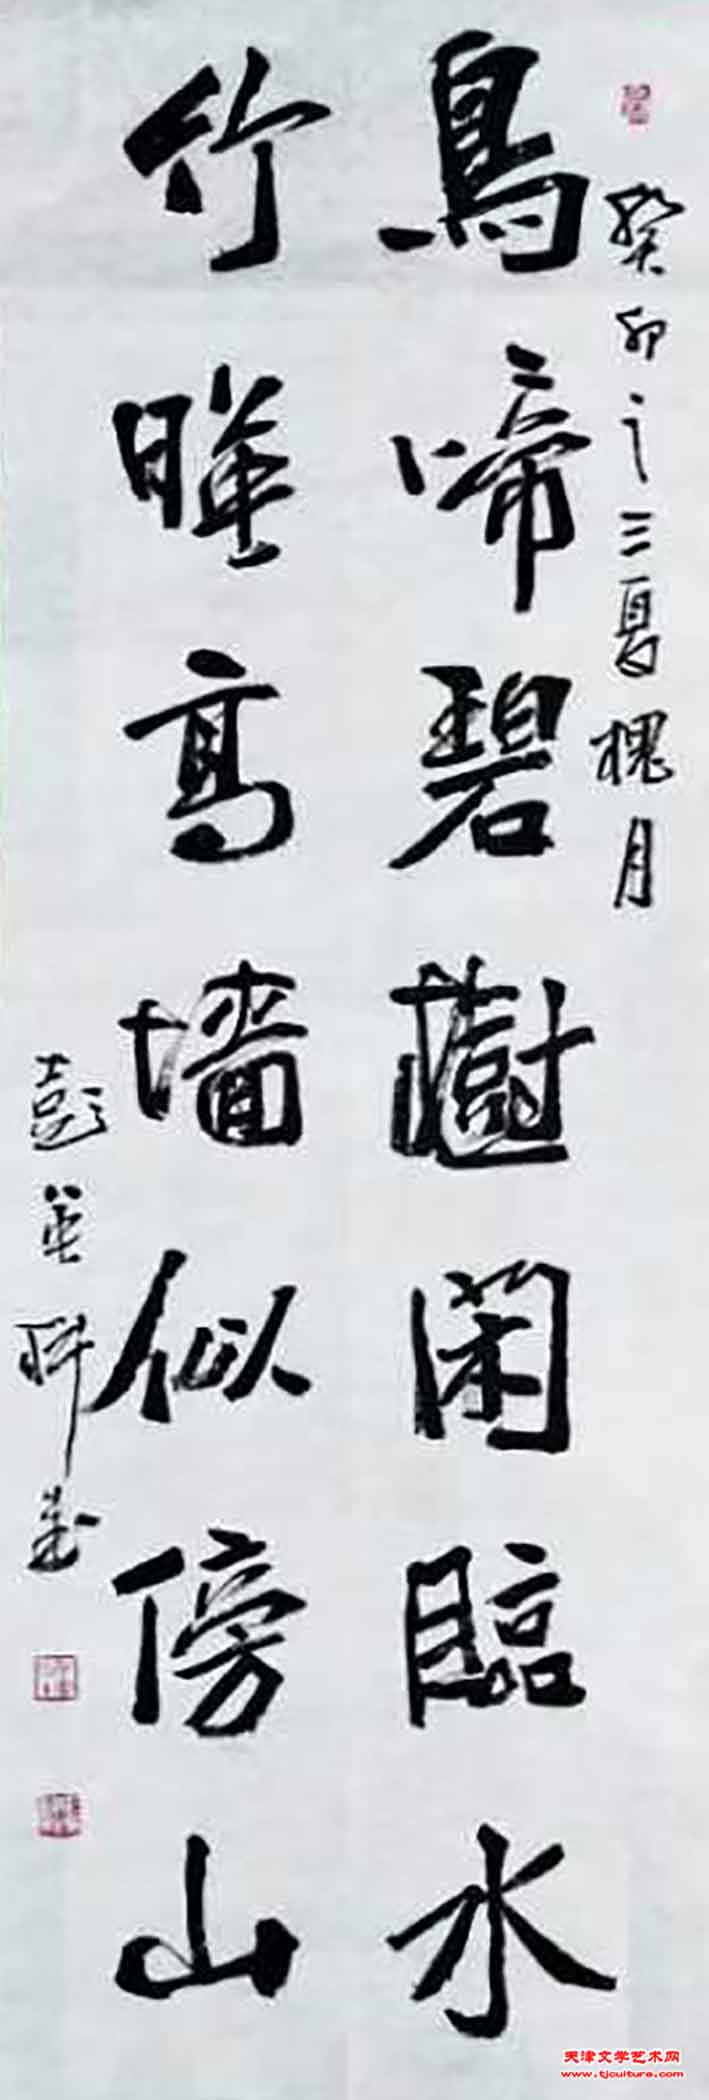 癸卯之三夏槐月
鳥啼碧樹閑臨水
竹暎高墻似傍山
彭英科书
天津文学艺术网
www.tjculture.com